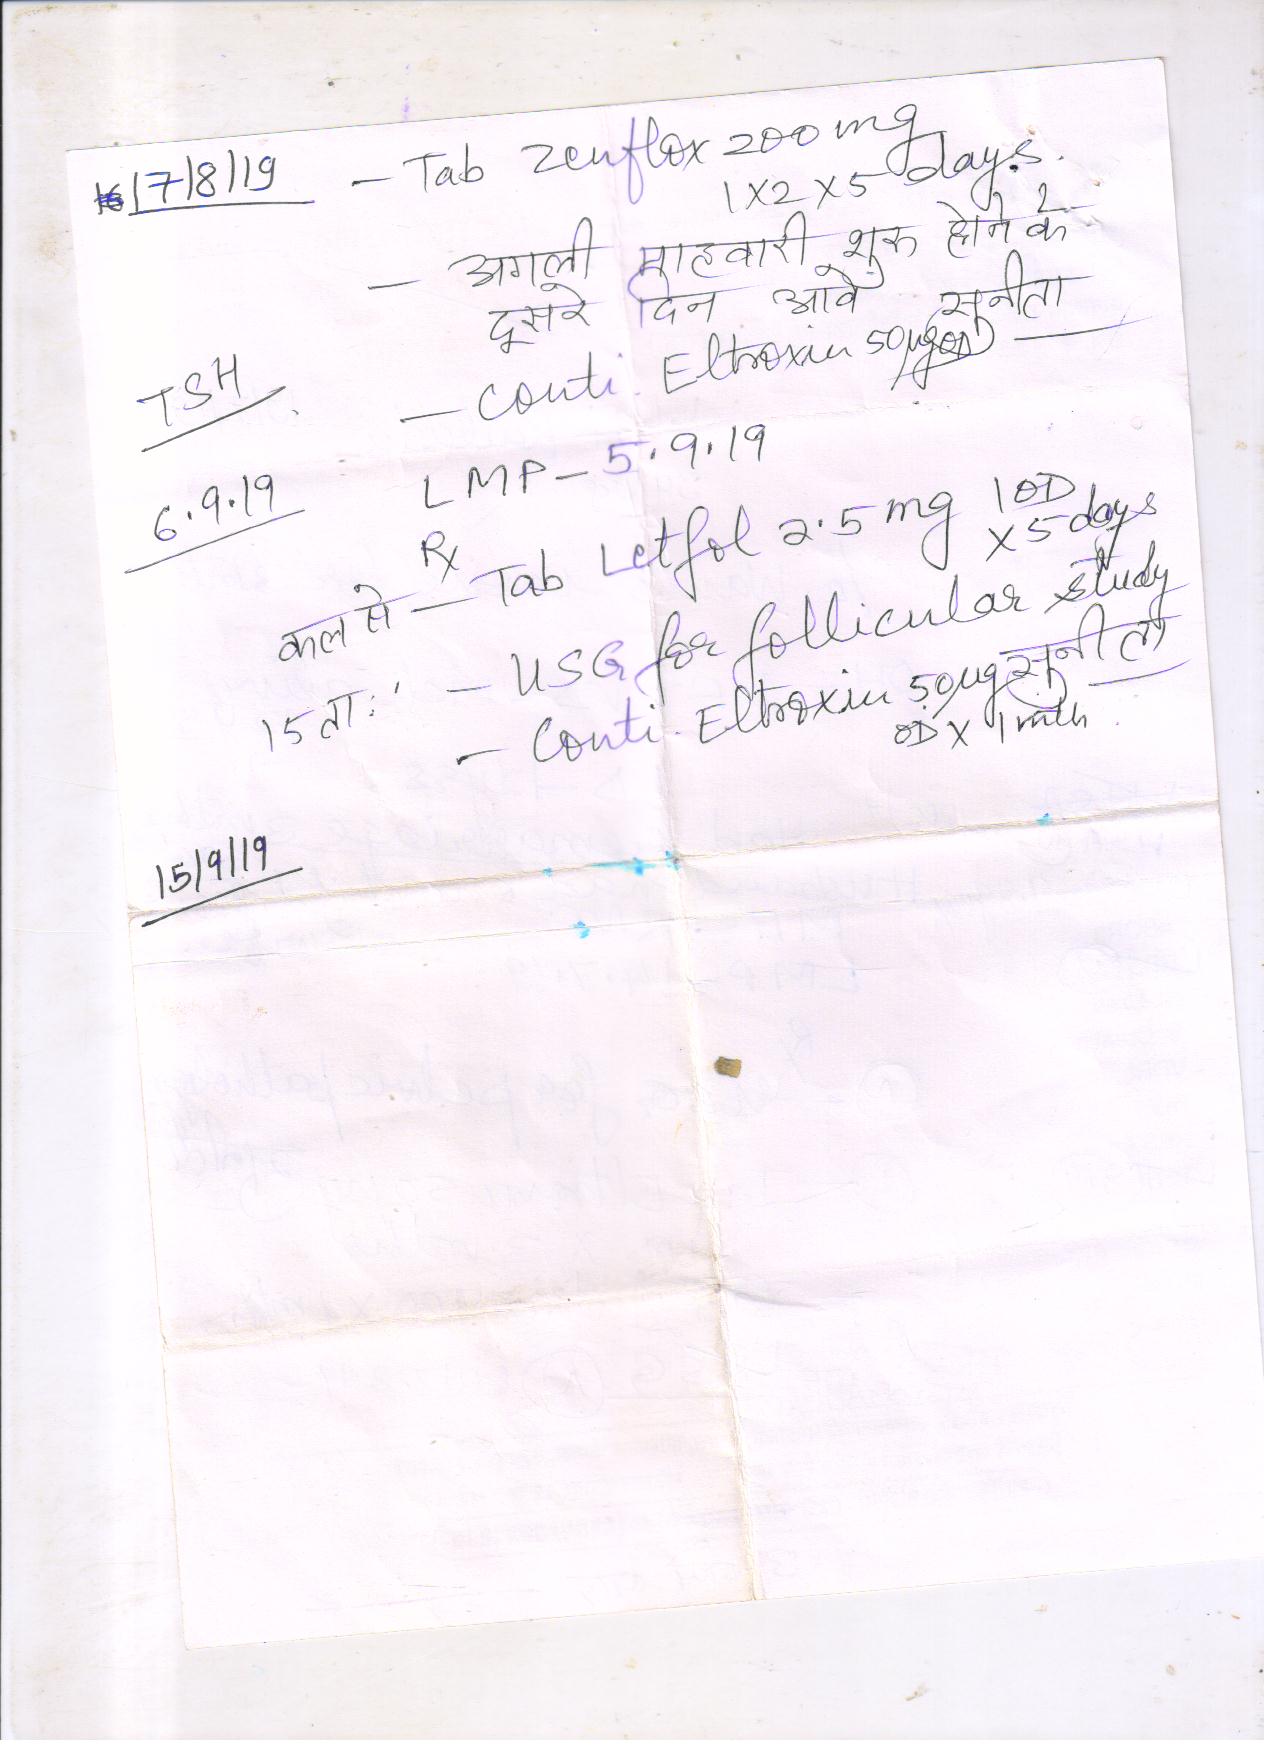 17/8/19 – Tab Zenflox 200 mg
1 X 2 X 5 days.
– अगली माहवारी शुरू होने के
दूसरे दिन आवे सुनीता
TSH – Conti. Eltroxin 50µg OD
6.9.19 LMP – 5.9.19
Rx
कल से – Tab Letfol 2.5 mg 1 OD
X 5 days
15 ता: – USG for follicular study
– Conti. Eltroxin 50µg सुनीता
OD X 1 mth
15/9/19